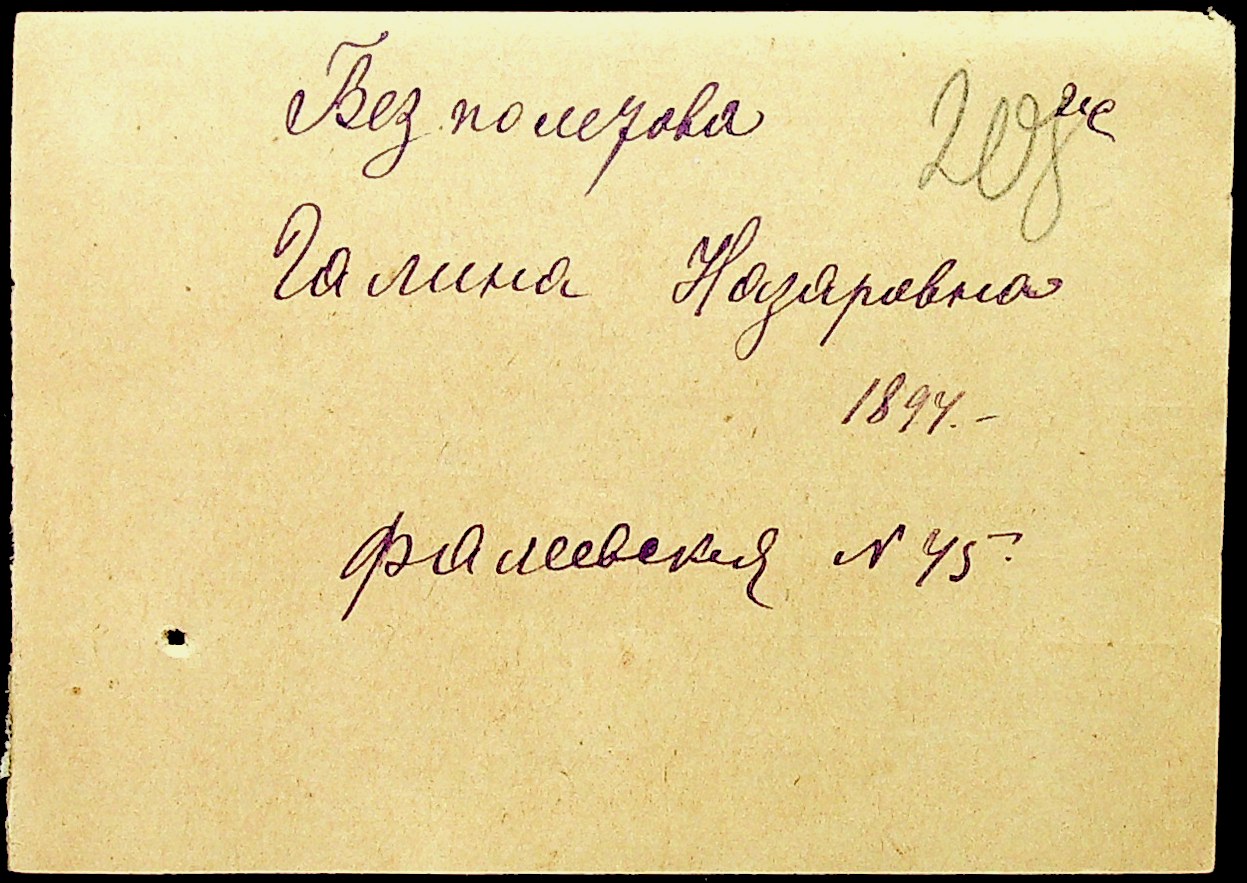 Безполетова 208
Галина Назаровна
1894.-
Фалеевская N 45